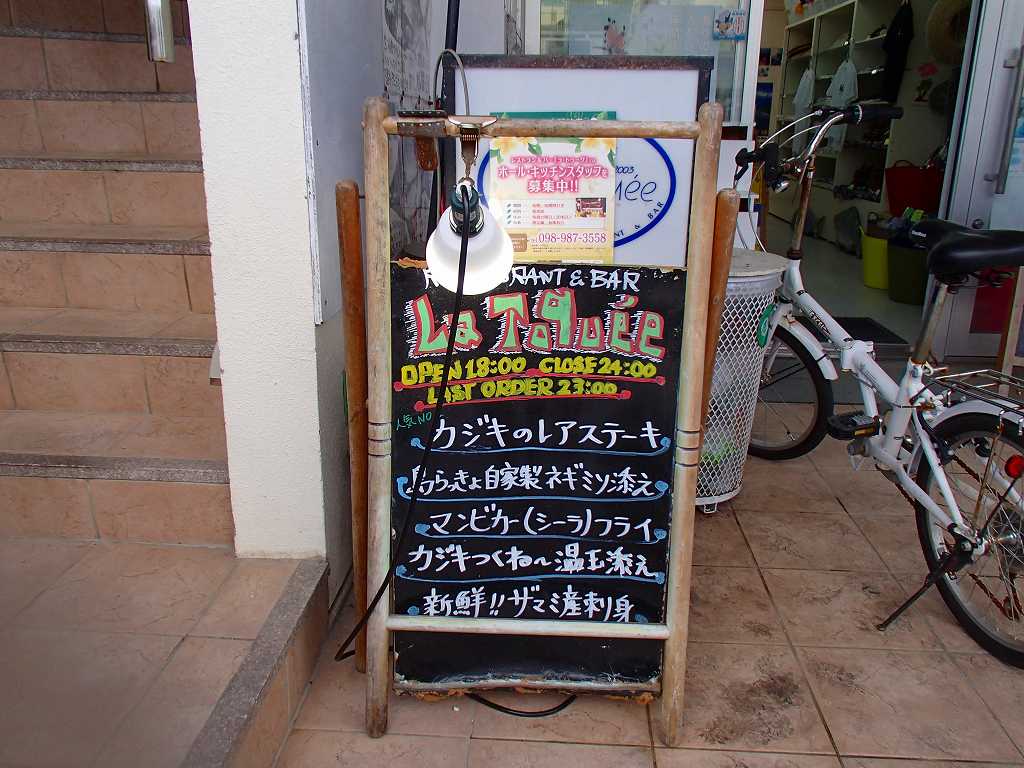 レストラン&バー「ラ・トゥーク」の
ホール・キッチンスタッフを
募集中!!
098-987-3558
2003
uée
NT & BAR
RANT & BAR
La Toquée
OPEN 18:00 CLOSE 24:00
LAST ORDER 23:00
人気NO
カジキのレアステーキ
島らっきょ自家製ネギミソ添え
マンビカー(シーラ)フライ
カジキつくね〜温玉添え
新鮮!!ザマミ産刺身